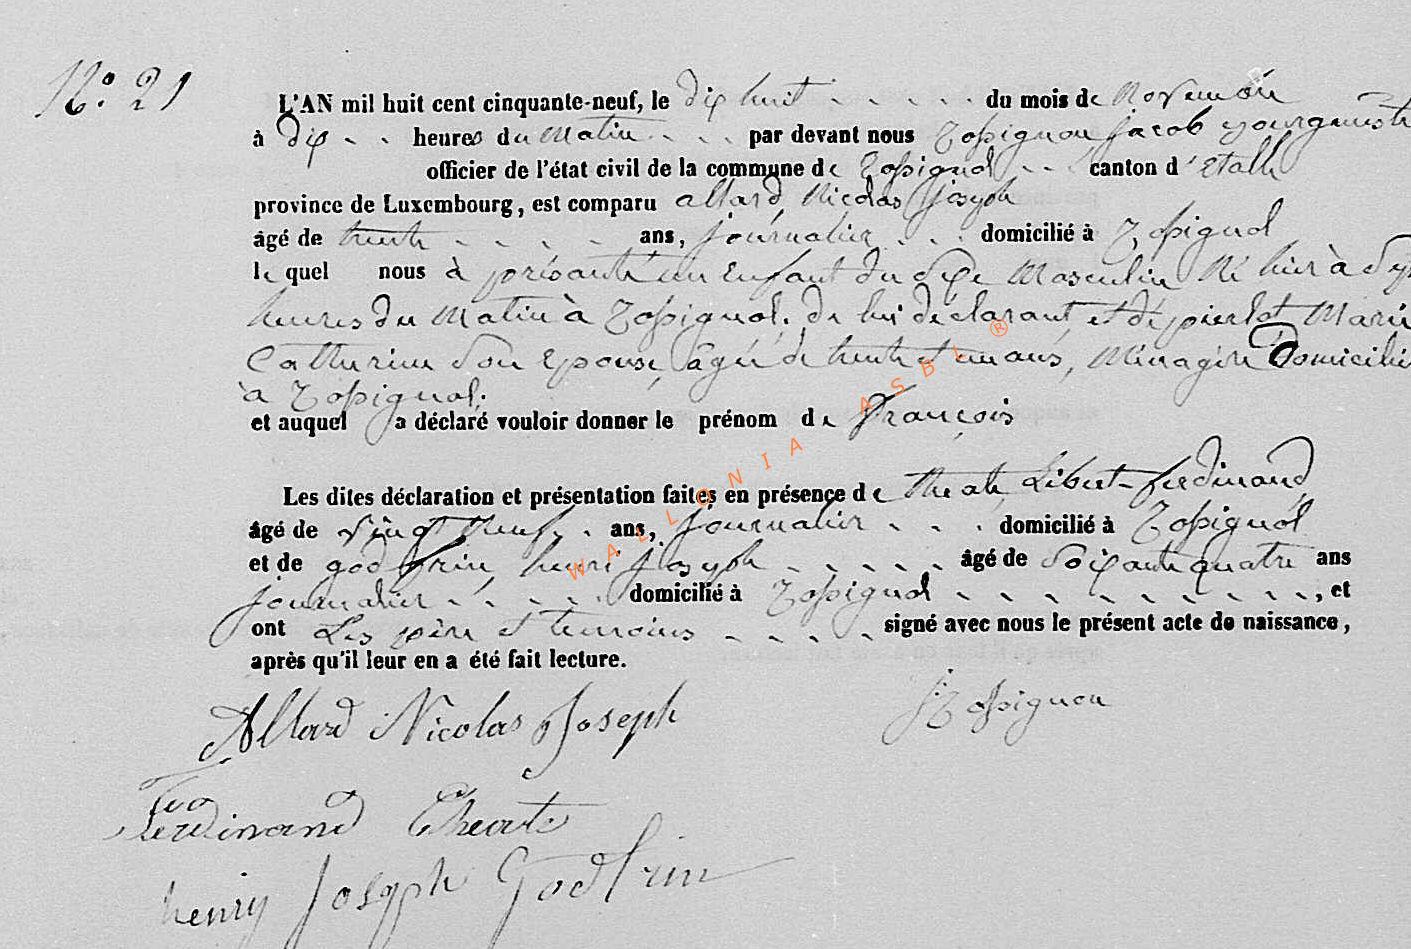 N.° 21
L'AN mil huit cent cinquante-neuf, le dix huit - - - - - du mois de Novembre
à dix - - heures du matin - - - par devant nous Rossignon jacob bourgmestre
officier de l'état civil de la commune de Rossignol - - canton d'étalle
province de Luxembourg, est comparu allard Nicolas joseph
âgé de trente - - - - ans, journalier - - - domicilié à Rossignol
le quel nous à présanté un Enfant du Sexe Masculin Né hier à Sept
heures du Matin à Rossignol. de lui déclarant, et de pierlot Marie
Catherine Son Epouse, âgée de trente et un ans, Ménagère Domiciliée
à Rossignol.
et auquel a déclaré vouloir donner le prénom de François
Les dites déclaration et présentation faites en présence de theate Libert-ferdinand
âgé de vingt neuf - ans, journalier - - - domicilié à Rossignol
et de godfrin, henri joseph - - - - - âgé de Soixante quatre ans
journalier - - - - - domicilié à Rossignol - - - - - - - - -, et
ont Les père et temoins - - - - signé avec nous le présent acte de naissance,
après qu'il leur en a été fait lecture.
Allard Nicolas Joseph
J Rossignon
Ferdinand Theate
henry Joseph Godfrin
WALLONIA ASBL ®